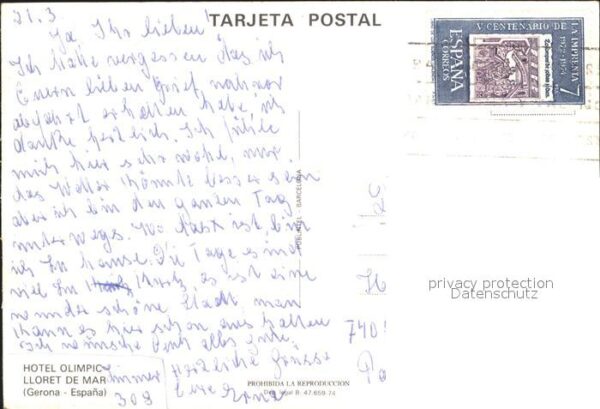 21.3.
TARJETA POSTAL
Ja Ihr lieben!
Ich hatte vergessen das ich
Euern lieben Brief noch vor
abfahrt erhalten habe ich
danke herzlich. Ich fühle
mich hier sehr wohl, nur
das Wetter könnte besser sein
aber ich bin den ganzen Tag
unterwegs. Wo
ich zu hause. Die Tage sind
viel zu kurz, es ist eine
wunder schöne Stadt man
kann es hier schon aus halten
Ich wünsche Euch alles gute.
Herzliche Grüsse
Eure
Zimmer
308
ESPAÑA
CORREOS
V CENTENARIO DE
LA IMPRENTA
1972-1974
7
BARCELONA
740
privacy protection
Datenschutz
HOTEL OLIMPIC
LLORET DE MAR
(Gerona - España)
PROHIBIDA LA REPRODUCCION
Dep. legal B. 47.659-74